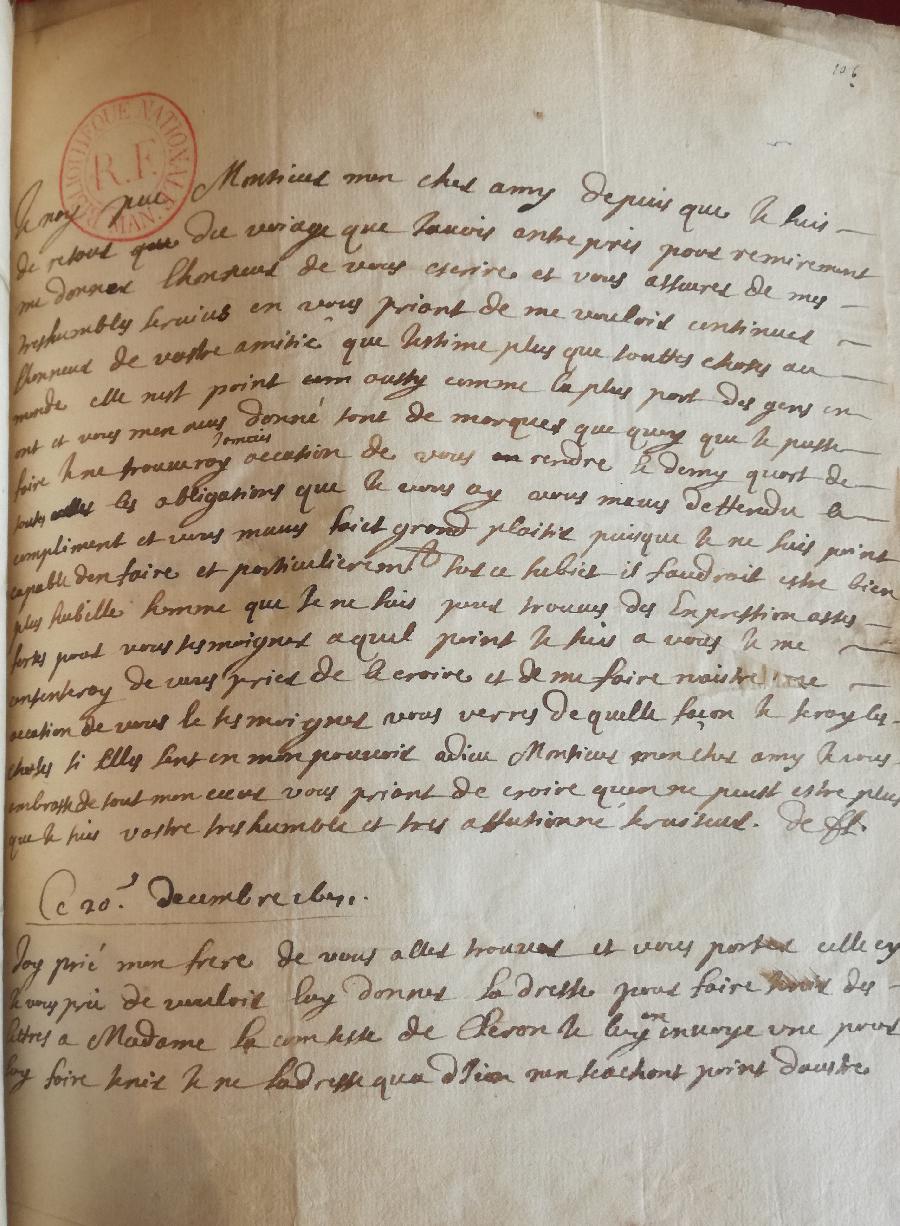 106
BIBLIOTHEQUE NATIONALE MAN. R.F.
Je nay peu Monsieur mon cher amy depuis que Je suis
de retour que du voriage que Javois entrepris pour remiremont
me donner lhonneur de vous escrire et vous assurer de mes
treshumbles services en vous priant de me vouloir continuer
lhonneur de vostre amitié que Jestime plus que touttes choses au
monde elle nest point com aussy comme la plus part des gens en
ont et vous men avés donné tant de marques que quoy que Je puisse
faire Je ne trouveray Jamais occation de vous en rendre le demy quart de
toutes les obligations que Je vous ay vous mavés deffendu le
compliment et vous mavés faict grand plaisir puisque Je ne suis point
capable den faire et particulierement sur ce subiet il faudroit estre bien
plus habille homme que Je ne suis pour trouver des Expression assés
fortes pour vous tesmoigner a quel point Je suis a vous Je me
contenteray de vous prier de le croire et de me faire naistre
occation de vous le tesmoigner vous verrés de quelle façon Je feray les
choses si Elles sont en mon pouvoir adieu Monsieur mon cher amy Je vous
embrasse de tout mon cœur vous priant de croire quon ne peust estre plus
que Je suis vostre treshumble et tres affectionné serviteur. de
Ce 20.e Decembre
Jay prié mon frere de vous aller trouver et vous porter celle cy
Je vous prie de vouloir luy donner ladresse pour faire tenir des
lettres a Madame la comtesse de Cleron Je luy en envoye une pour
luy faire tenir Je ne ladresse qua nen sachant point dautre